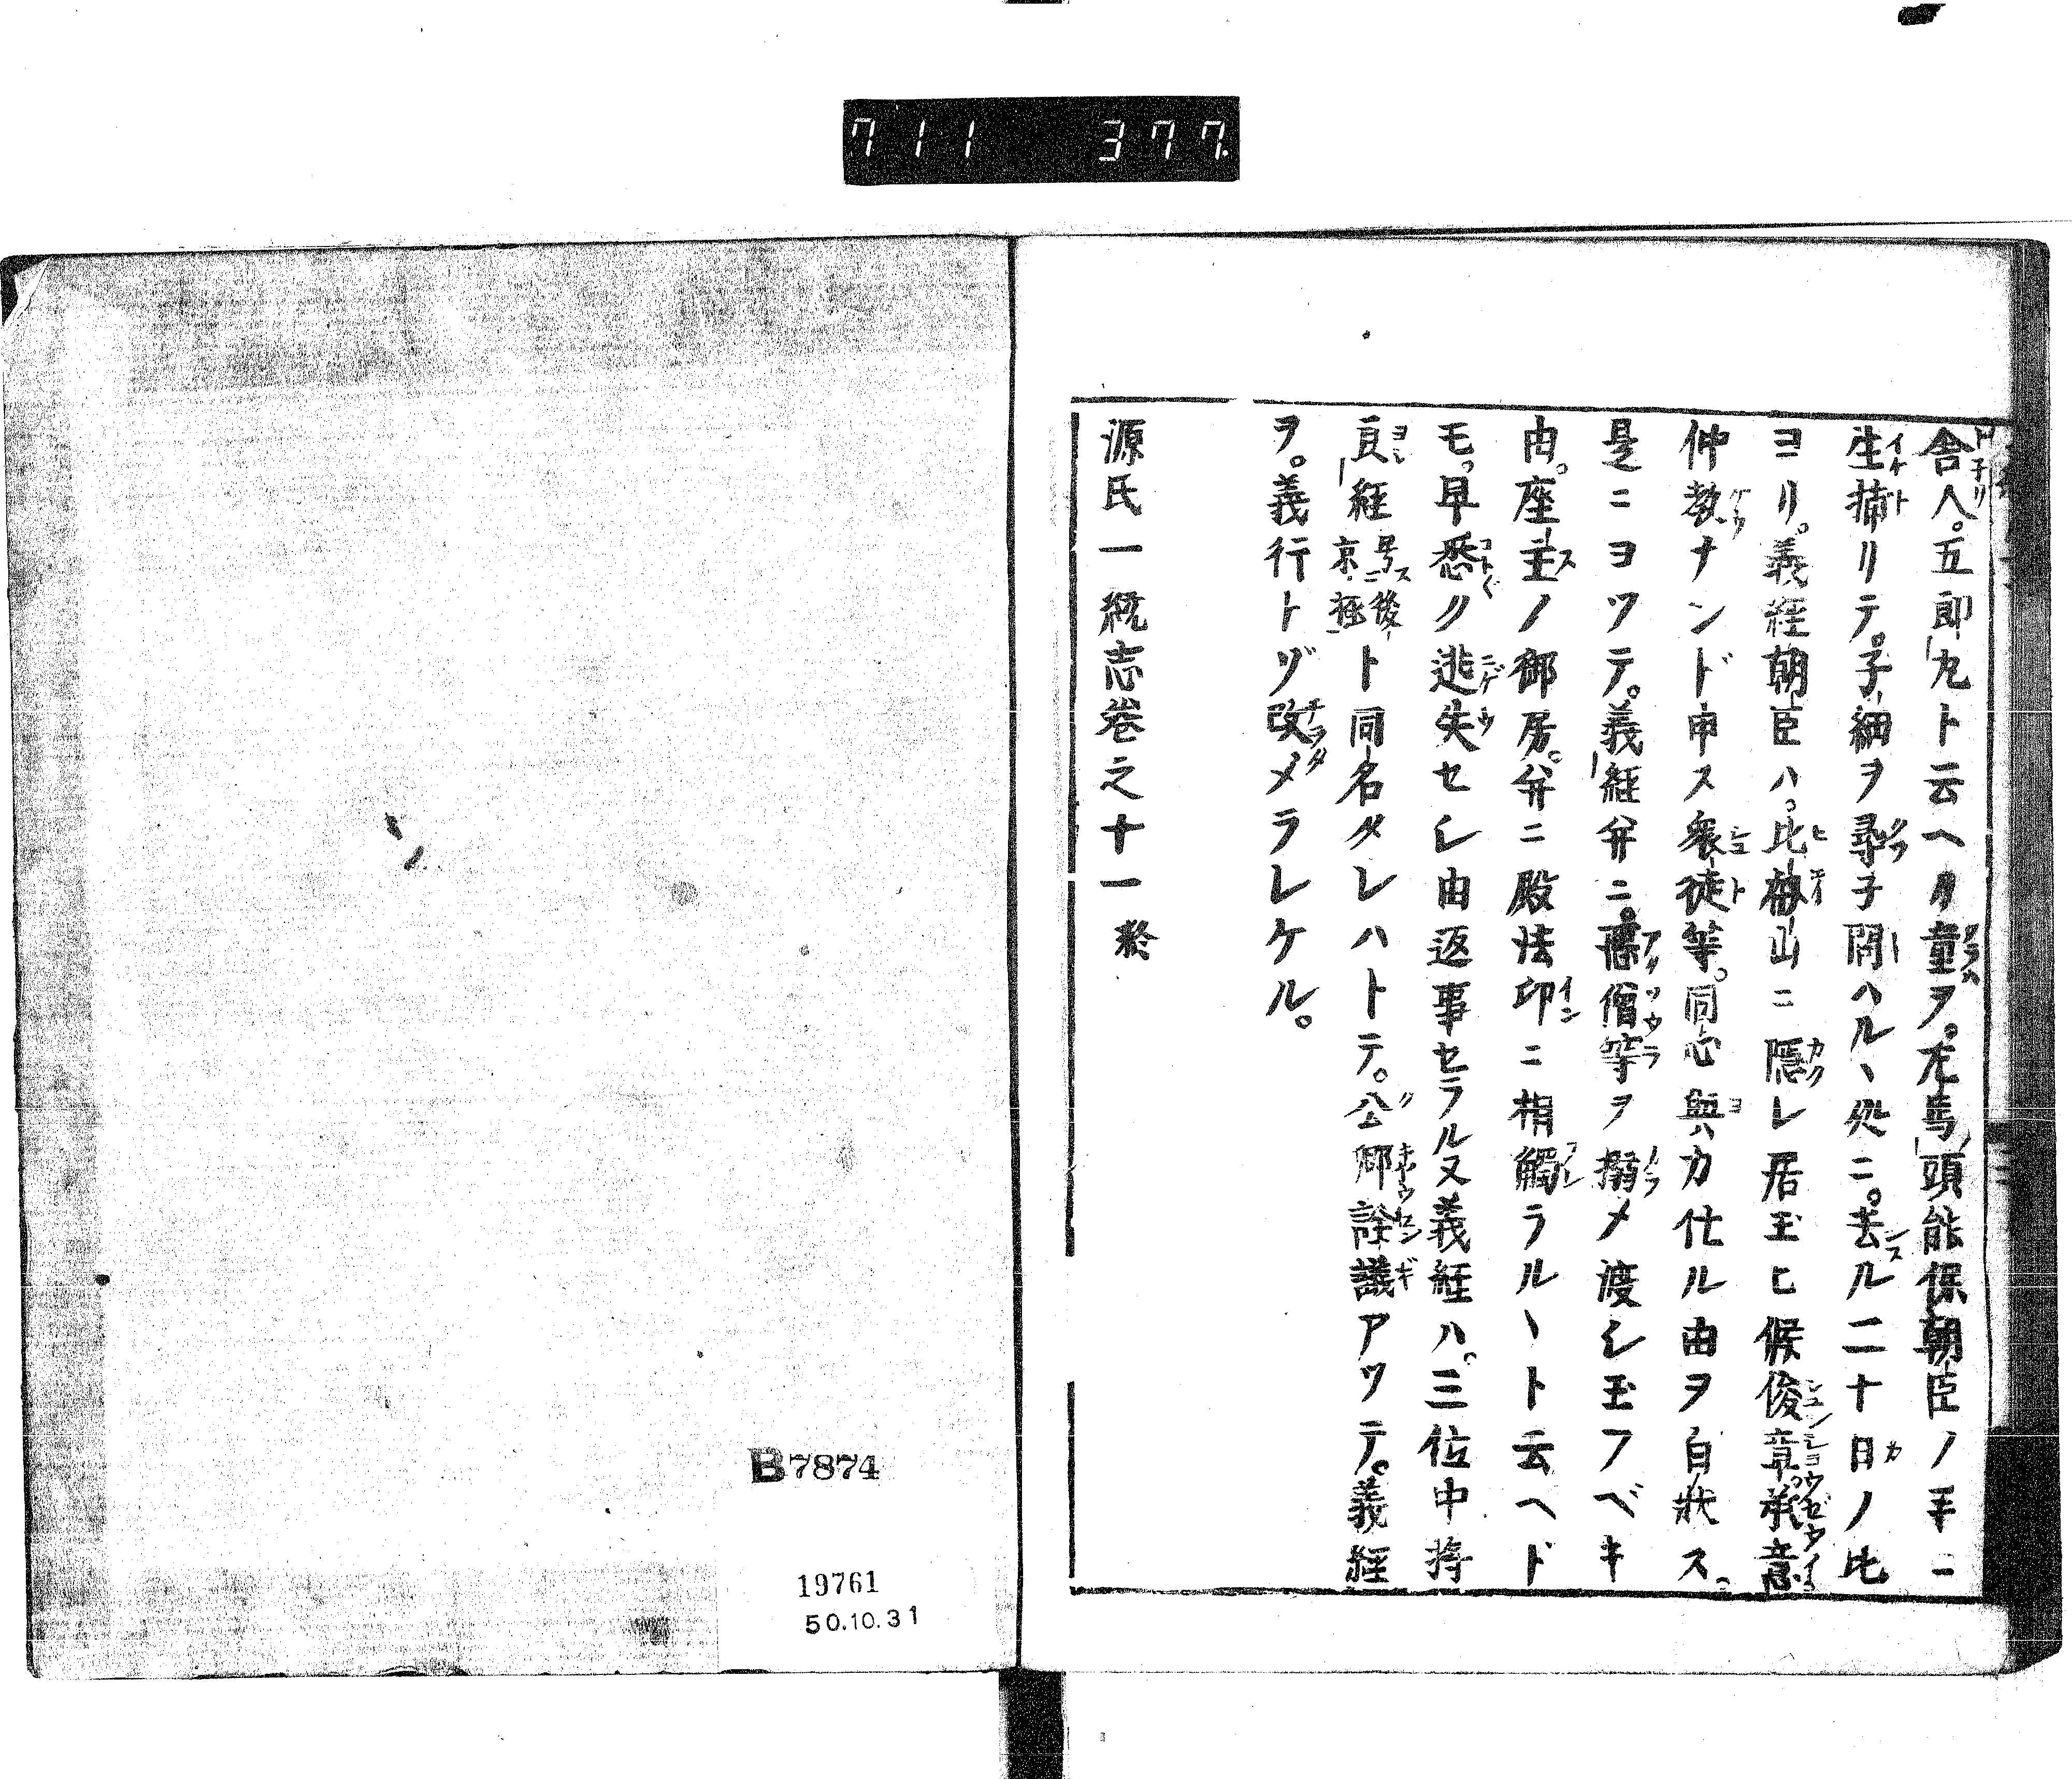 711 377.
舎人。五郎丸ト云ヘル童ヲ。左馬頭能保朝臣ノ手ニ
生捕リテ。子細ヲ尋子問ハルヽ処ニ。去ル二十日ノ比
ヨリ。義経朝臣ハ。比叡山ニ隠レ居玉ヒ候俊章。承意
仲教ナンド申ス衆徒等。同心與力仕ル由ヲ白狀ス。
是ニヨツテ。義経弁ニ。悪僧等ヲ搦メ渡シ玉フベキ
由。座主ノ御房。弁ニ殿法印ニ相觸ラルヽト云ヘド
モ。早悉ク逃失セシ由返事セラル又義経ハ。三位中将
良経号ス後京極ト同名タレハトテ。公卿詮議アツテ。義経
ヲ。義行トゾ改メラレケル。
源氏一統志巻之十一終
B7874
19761
50.10.31